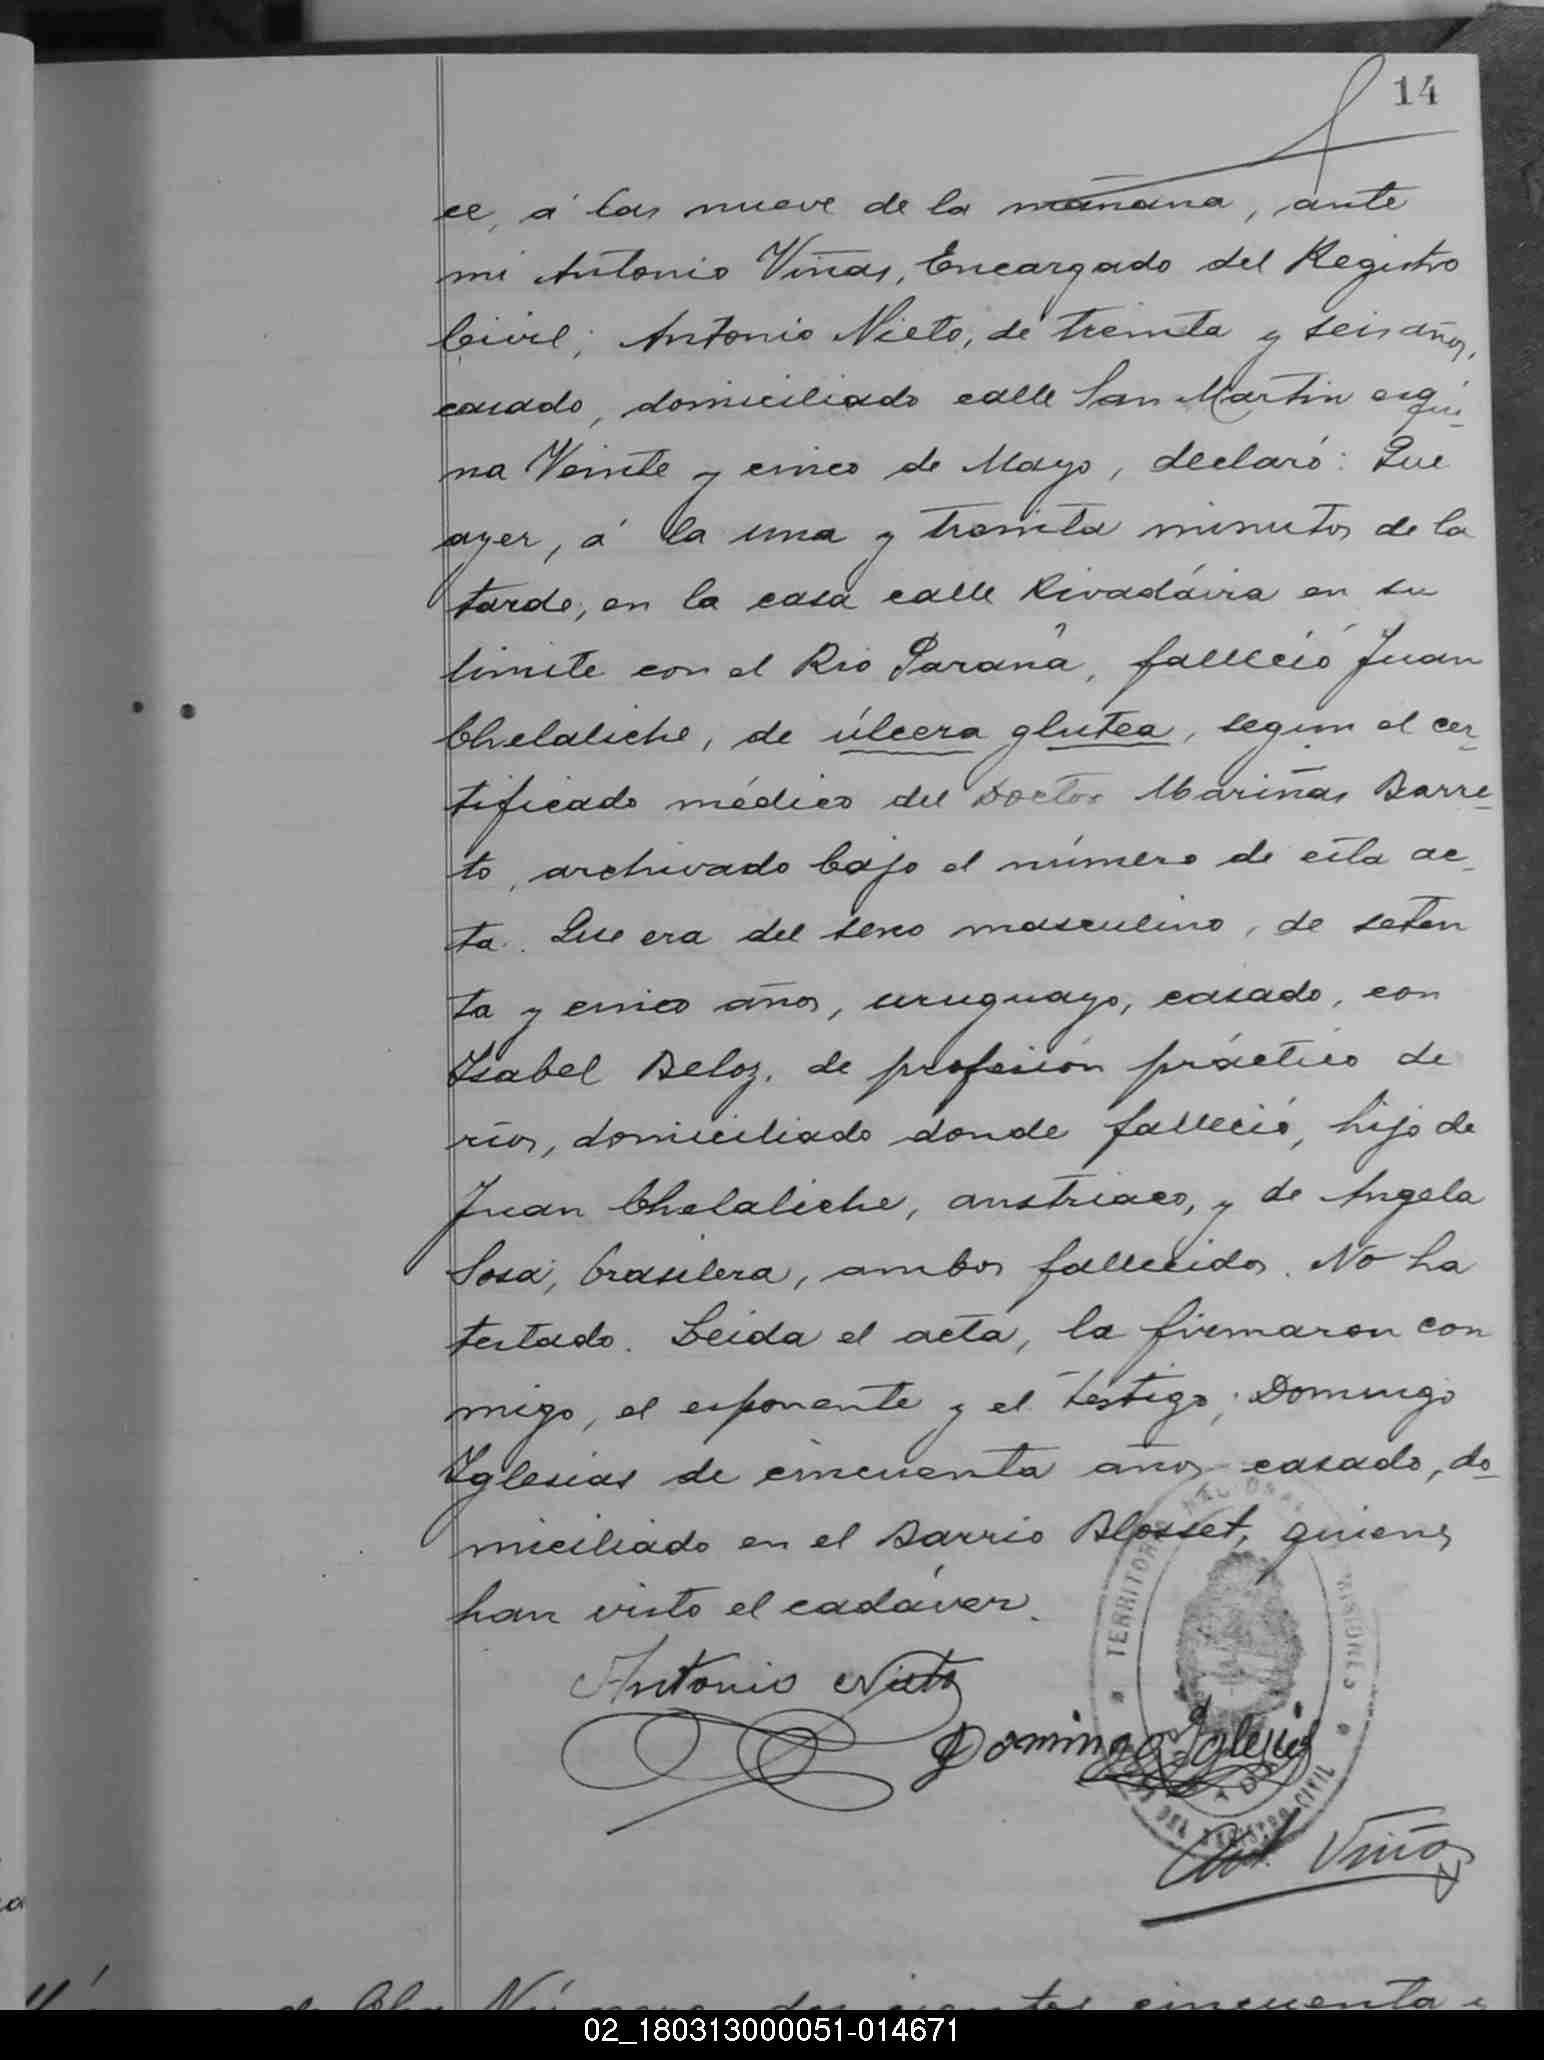 14
ce, á las nueve de la mañana, ante
mi Antonio Viñas, Encargado del Registro
Civil; Antonio Nieto, de treinta y seis años,
casado, domiciliado calle San Martin esqui-
na Veinte y cinco de Mayo, declaró: Que
ayer, á la una y treinta minutos de la
tarde, en la casa calle Rivadávia en su
limite con el Rio Paraná, falleció Juan
Chelaliche, de úlcera glutea, segun el cer-
tificado médico del Doctor Mariñas Barre-
to, archivado bajo el número de esta ac-
ta. Que era del sexo masculino, de seten
ta y cinco años, uruguayo, casado, con
Isabel Beloz, de profesión práctico de
rios, domiciliado donde falleció, hijo de
Juan Chelaliche, austriaco, y de Angela
Sosa, brasilera, ambos fallecidos. No ha
testado. Leida el acta, la firmaron con
migo, el exponente y el testigo; Domingo
Iglesias de cincuenta años casado, do-
miciliado en el Barrio Blosset, quienes
han visto el cadáver.
Antonio Nieto
Domingo Iglesias
Ant. Viñas
TERRITORIO NACIONAL MISIONES
DEL REGISTRO CIVIL
Número dos cientos cincuenta y
02_180313000051-014671